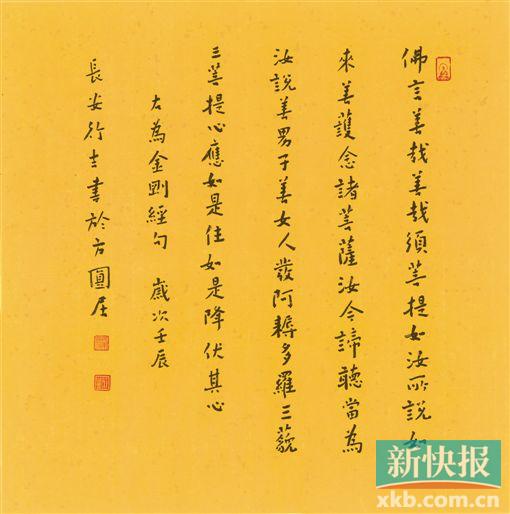 佛言善哉善哉須菩提如汝所說如
來善護念諸菩薩汝今諦聽當為
汝說善男子善女人發阿耨多羅三藐
三菩提心應如是住如是降伏其心
右為金剛經句 歲次壬辰
長安行書於方圓居
新快报
xkb.com.cn